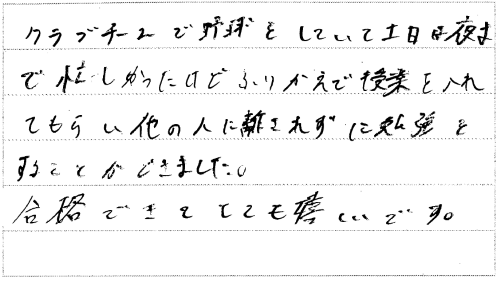 クラブチームで野球をしていて土日は夜ま
で忙しかったけどふりかえで授業を入れ
てもらい他の人に離されずに勉強を
することができました。
合格できてとても嬉しいです。